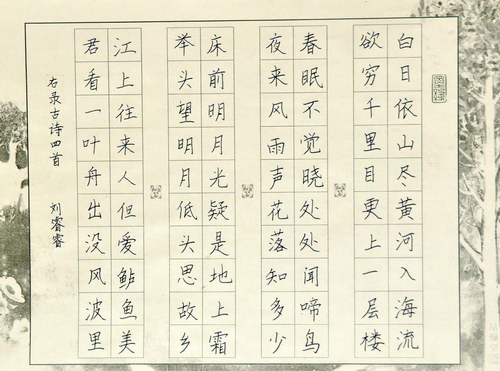 白日依山尽黄河入海流
欲穷千里目更上一层楼
春眠不觉晓处处闻啼鸟
夜来风雨声花落知多少
床前明月光疑是地上霜
举头望明月低头思故乡
江上往来人但爱鲈鱼美
君看一叶舟出没风波里
右录古诗四首 刘睿睿